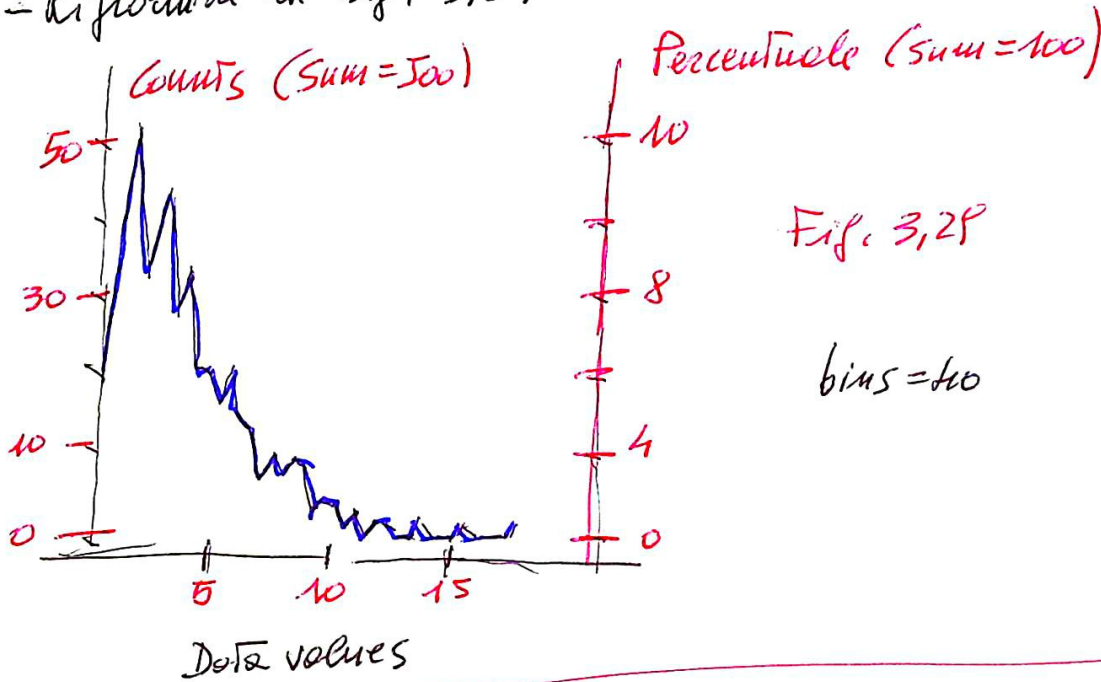 in
Counts (Sum=500)
Percentuale (sum=100)
50
30
10
0
10
8
4
0
Fig. 3,29
bins=40
5 10 15
Data values